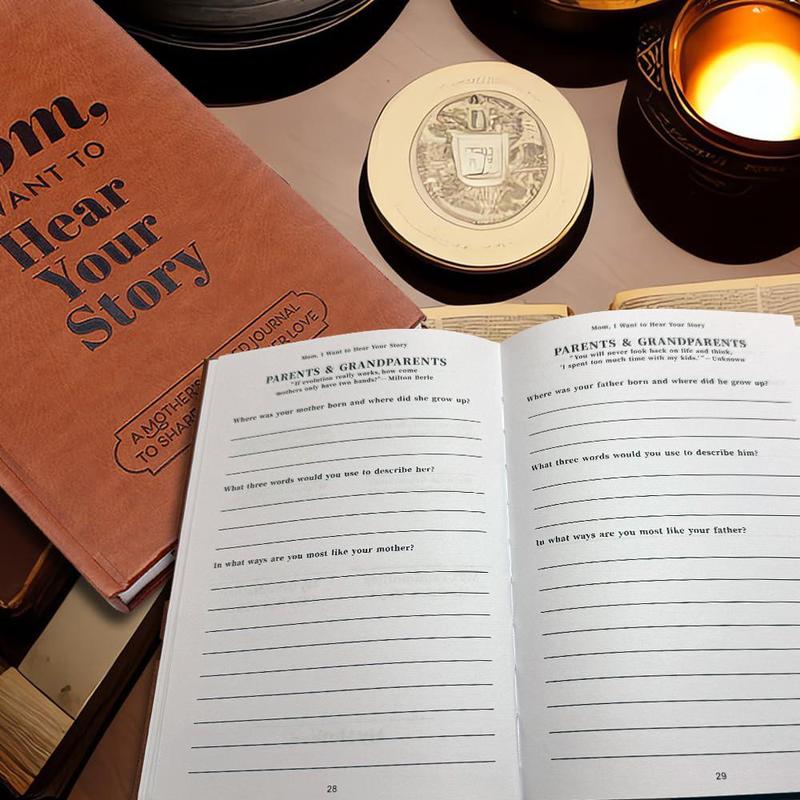 om,
WANT TO
Hear
Your
Story
A MOTHER'S JOURNAL
TO SHARE HER LOVE
Mom, I Want to Hear Your Story
PARENTS & GRANDPARENTS
"If evolution really works, how come
mothers only have two hands?" — Milton Berle
Where was your mother born and where did she grow up?
What three words would you use to describe her?
In what ways are you most like your mother?
28
Mom, I Want to Hear Your Story
PARENTS & GRANDPARENTS
"You will never look back on life and think,
'I spent too much time with my kids.'" — Unknown
Where was your father born and where did he grow up?
What three words would you use to describe him?
In what ways are you most like your father?
29